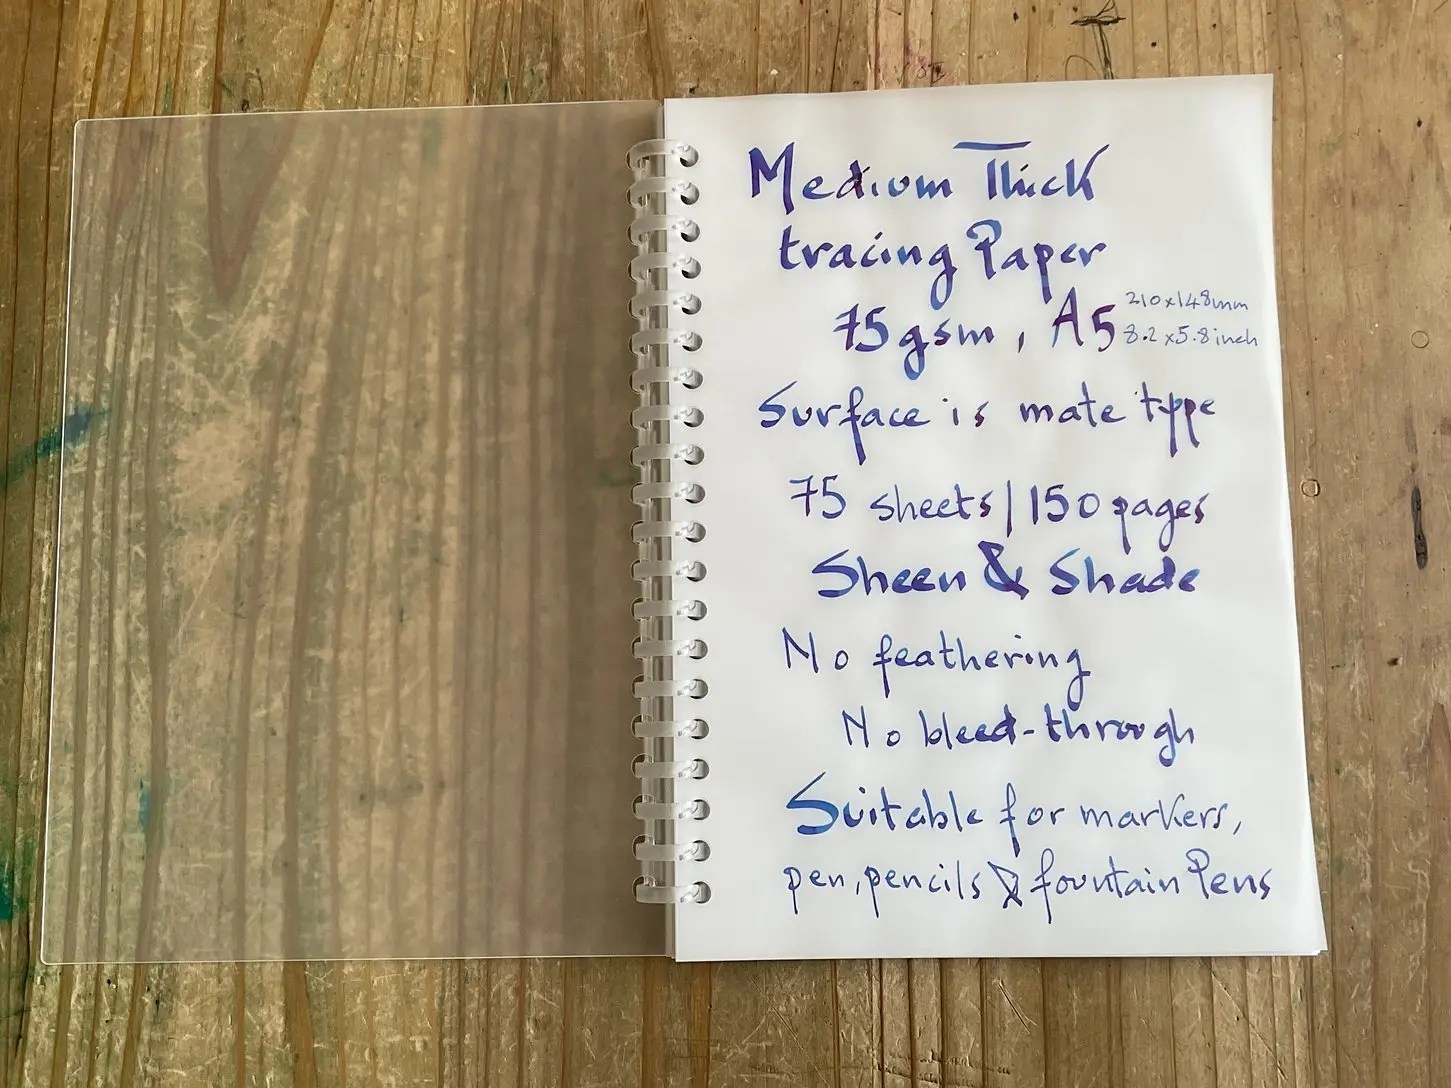 Medium Thick
tracing Paper
75gsm, A5 210x148mm
8.2x5.8inch
Surface is mate type
75 sheets | 150 pages
Sheen & Shade
No feathering
No bleed-through
Suitable for markers,
pen, pencils & fountain Pens